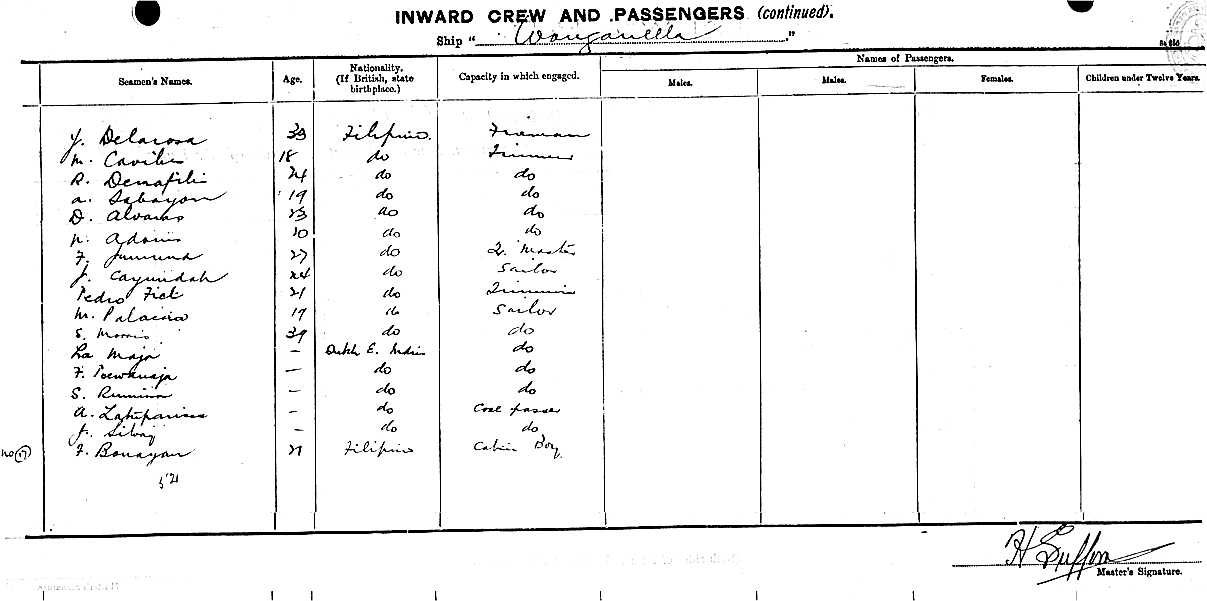 INWARD CREW AND PASSENGERS (continued).
Ship "Wanganella"
Seamen's Names. Age. Nationality. (If British, state birthplace.) Capacity in which engaged. Names of Passengers.
Males. Males. Females. Children under Twelve Years.
J. Delarosa 33 Filipino. Fireman
M. Cavilis 18 do Trimmer
R. 24 do do
A. Sabayon 19 do do
D. Alvaras 23 do do
N. Adonis 20 do do
F. 27 do Q. Master
J. Cayundah 24 do Sailor
Pedro Fict 21 do Trimmer
M. Palacio 19 do Sailor
S. Morris 39 do do
La Maja – Dutch E. Indies do
F. – do do
S. Rumina – do do
A. – do Coal passer
– do do
No (17) F. Bonayan 21 Filipino Cabin Boy
Master's Signature.